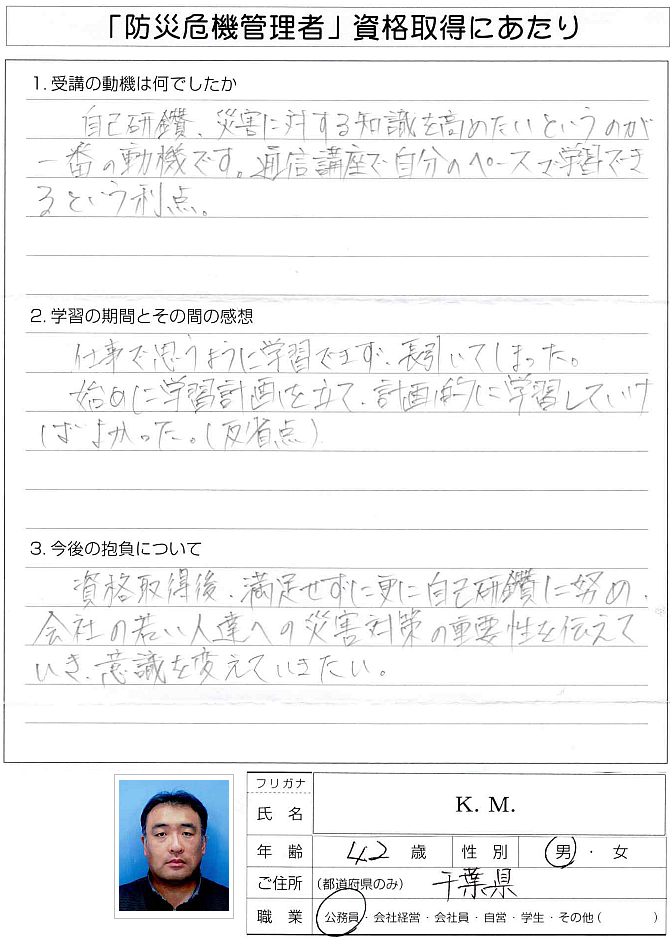 「防災危機管理者」資格取得にあたり
1. 受講の動機は何でしたか
自己研鑽、災害に対する知識を高めたいというのが
一番の動機です。通信講座で自分のペースで学習でき
るという利点。
2. 学習の期間とその間の感想
仕事で思うように学習できず、長引いてしまった。
始めに学習計画を立て、計画的に学習していけ
ばよかった。(反省点)
3. 今後の抱負について
資格取得後、満足せずに更に自己研鑽に努め、
会社の若い人達への災害対策の重要性を伝えて
いき、意識を変えていきたい。
フリガナ
氏 名 K. M.
年 齢 42 歳 性 別 男 ・ 女
ご住所 (都道府県のみ) 千葉県
職 業 公務員・会社経営・会社員・自営・学生・その他( )